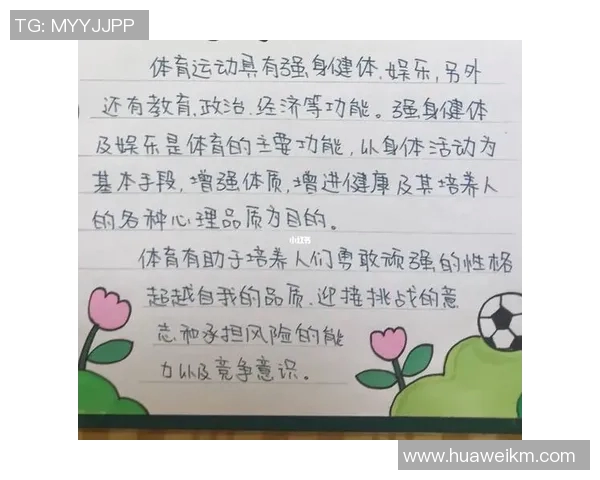 TG: MYYJJPP
体育运动具有强身健体、娱乐,另外
还有教育、政治、经济等功能。强身健体
及娱乐是体育的主要功能,以身体活动为
基本手段,增强体质,增进健康及其培养人
的各种心理品质为目的。
小红书
体育有助于培养人们勇敢顽强的性格
超越自我的品质、迎接挑战的意
志和承担风险的能
力以及竞争意识。
www.huaweikm.com